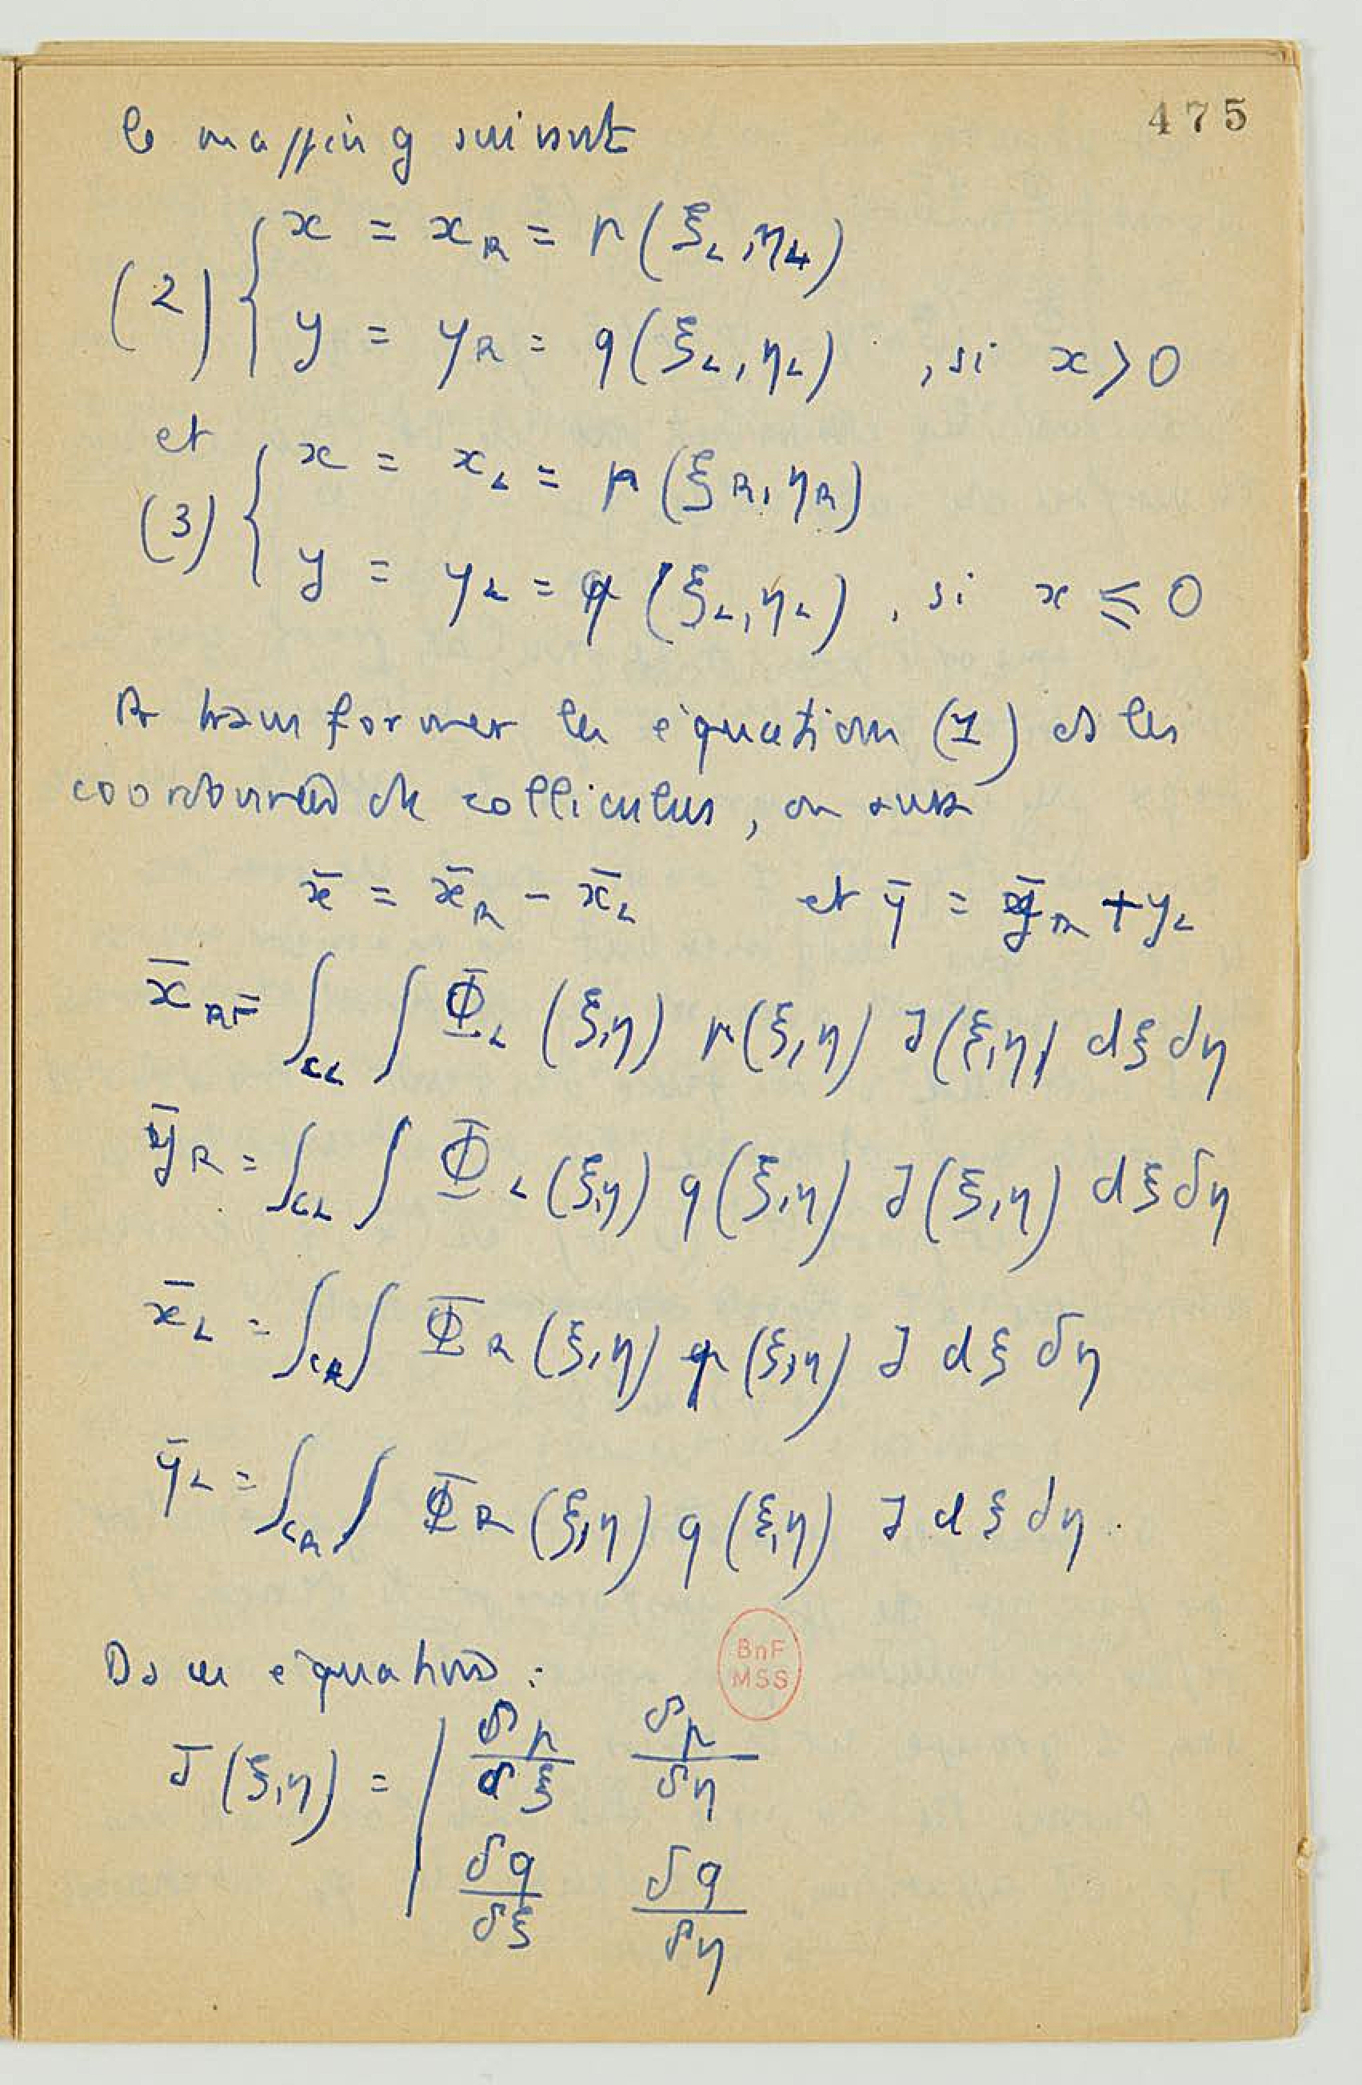 475
le mapping suivant
(2) { x = x_R = p(ξ_L, η_L)
y = y_R = q(ξ_L, η_L) , si x > 0
et
(3) { x = x_L = p(ξ_R, η_R)
y = y_L = q(ξ_L, η_L) , si x ⩽ 0
transformer les équations (1) ds les
coordonnées de colliculus, on aura
x̄ = x̄_R - x̄_L et ȳ = ȳ_R + y_L
x̄_R = ∫_CL ∫ Φ_L (ξ,η) p(ξ,η) J(ξ,η) dξ dη
ȳ_R = ∫_CL ∫ Φ_L (ξ,η) q(ξ,η) J(ξ,η) dξ δη
x̄_L = ∫_CR ∫ Φ_R (ξ,η) p(ξ,η) J dξ δη
ȳ_L = ∫_CR ∫ Φ_R (ξ,η) q(ξ,η) J dξ dη.
Ds ces équations :
BnF
MSS
J(ξ,η) = | δp/δξ δp/δη
δq/δξ δq/δη